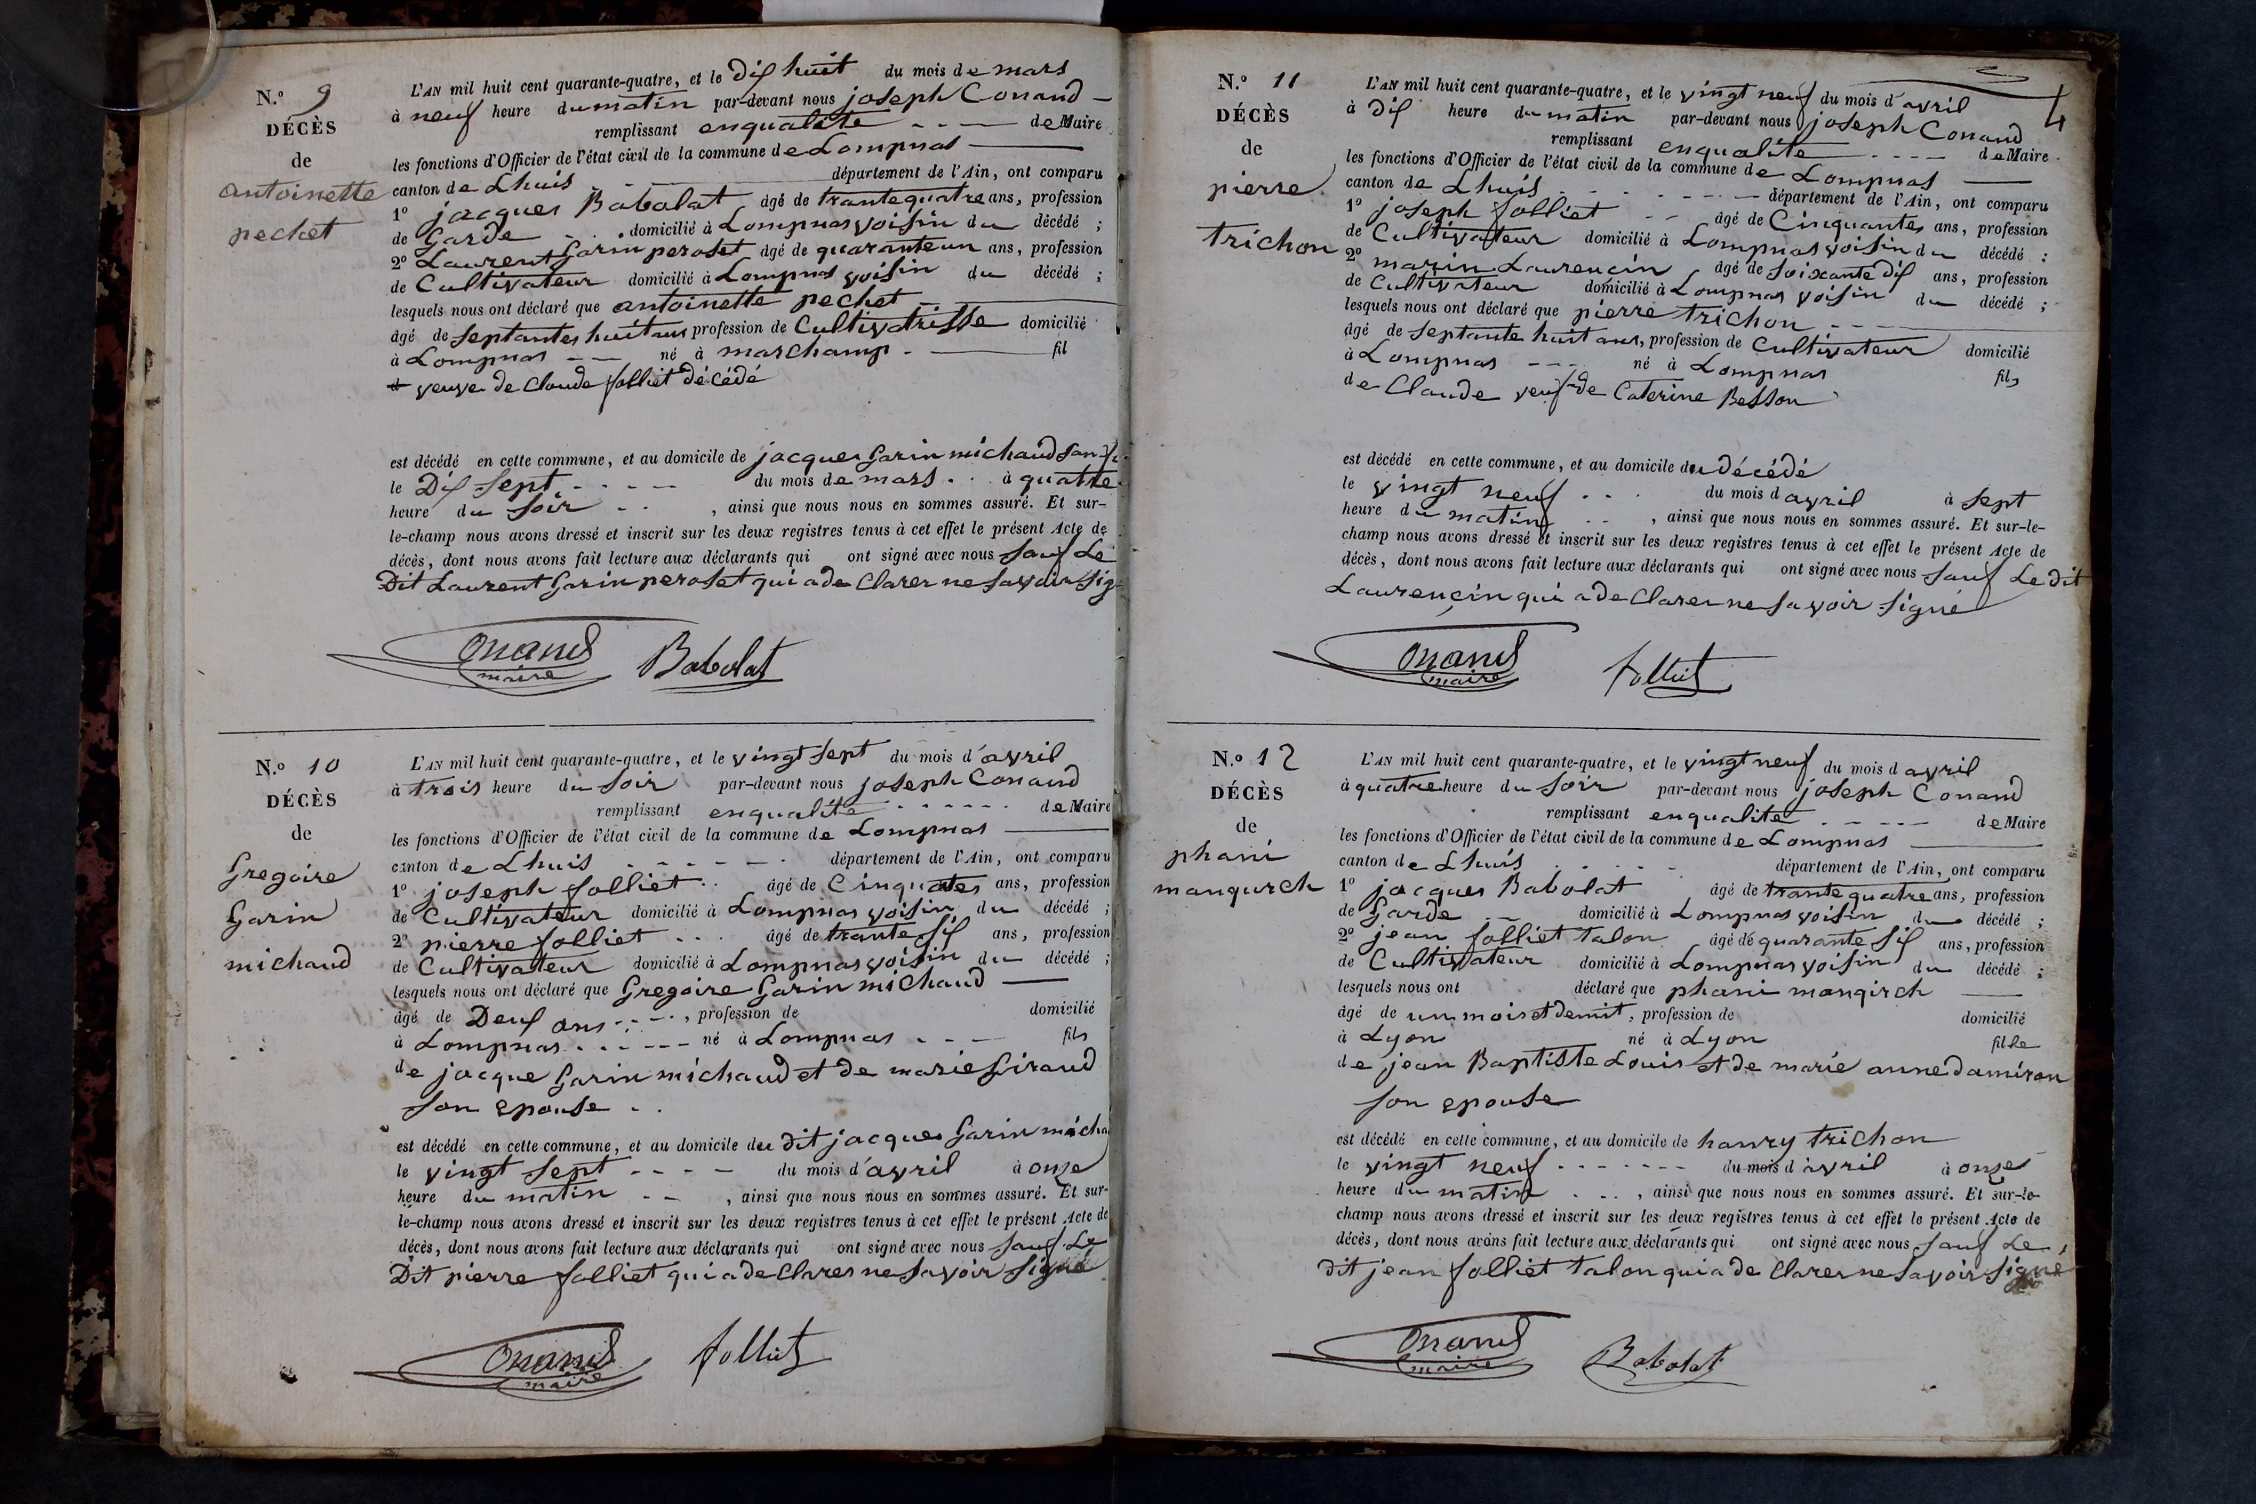 N.º 9
DÉCÈS
de
antoinette
pechet
L'AN mil huit cent quarante-quatre, et le dix huit du mois de mars
à neuf heure du matin par-devant nous joseph Conand
remplissant enqualité de Maire
les fonctions d'Officier de l'état civil de la commune de Lompnas
canton de Lhuis département de l'Ain, ont comparu
1º jacques Babolat âgé de trante quatre ans, profession
de Garde domicilié à Lompnas voisin du décédé ;
2º Laurent Garin peroset âgé de quaranteun ans, profession
de Cultivateur domicilié à Lompnas voisin du décédé ;
lesquels nous ont déclaré que antoinette pechet
âgé de septantes huit ans profession de Cultivatrisse domicilié
à Lompnas né à marchamp fil
veuve de Claude folliet décédé
est décédé en cette commune, et au domicile de jacques Garin michaud
le Dix sept du mois de mars à quatre
heure du soir , ainsi que nous nous en sommes assuré. Et sur-
le-champ nous avons dressé et inscrit sur les deux registres tenus à cet effet le présent Acte de
décès, dont nous avons fait lecture aux déclarants qui ont signé avec nous sauf Le
Dit Laurent Garin peroset qui a de Clarer ne savoir sig
Conand
maire
Babolat
N.º 10
DÉCÈS
de
Gregoire
Garin
michaud
L'AN mil huit cent quarante-quatre, et le vingt sept du mois d'avril
à trois heure du soir par-devant nous joseph Conand
remplissant enqualité de Maire
les fonctions d'Officier de l'état civil de la commune de Lompnas
canton de Lhuis département de l'Ain, ont comparu
1º joseph folliet âgé de Cinquantes ans, profession
de Cultivateur domicilié à Lompnas voisin du décédé ;
2º pierre folliet âgé de trante six ans, profession
de Cultivateur domicilié à Lompnas voisin du décédé ;
lesquels nous ont déclaré que Gregoire Garin michaud
âgé de Deux ans , profession de domicilié
à Lompnas né à Lompnas fils
de jacque Garin michaud et de marie Giraud
son epouse
est décédé en cette commune, et au domicile du dit jacques Garin micha
le vingt sept du mois d'avril à onze
heure du matin , ainsi que nous nous en sommes assuré. Et sur-
le-champ nous avons dressé et inscrit sur les deux registres tenus à cet effet le présent Acte de
décès, dont nous avons fait lecture aux déclarants qui ont signé avec nous sauf Le
Dit pierre folliet qui a de Clarer ne savoir signé
Conand
maire
folliet
4
N.º 11
DÉCÈS
de
pierre
trichon
L'AN mil huit cent quarante-quatre, et le vingt neuf du mois d'avril
à dix heure du matin par-devant nous joseph Conand
remplissant enqualité de Maire
les fonctions d'Officier de l'état civil de la commune de Lompnas
canton de Lhuis département de l'Ain, ont comparu
1º joseph folliet âgé de Cinquantes ans, profession
de Cultivateur domicilié à Lompnas voisin du décédé ;
2º marin Laurencin âgé de soixante dix ans, profession
de Cultivateur domicilié à Lompnas voisin du décédé ;
lesquels nous ont déclaré que pierre trichon
âgé de septante huit ans, profession de Cultivateur domicilié
à Lompnas né à Lompnas fils
de Claude veuf de Caterine Besson
est décédé en cette commune, et au domicile du décédé
le vingt neuf du mois d avril à sept
heure du matin , ainsi que nous nous en sommes assuré. Et sur-le-
champ nous avons dressé et inscrit sur les deux registres tenus à cet effet le présent Acte de
décès, dont nous avons fait lecture aux déclarants qui ont signé avec nous sauf Le dit
Laurençin qui a de Clarer ne savoir signé
Conand
maire
folliet
N.º 12
DÉCÈS
de
phani
mangurch
L'AN mil huit cent quarante-quatre, et le vingt neuf du mois d avril
à quatre heure du soir par-devant nous joseph Conand
remplissant enqualité de Maire
les fonctions d'Officier de l'état civil de la commune de Lompnas
canton de Lhuis département de l'Ain, ont comparu
1º jacques Babolat âgé de trante quatre ans, profession
de Garde domicilié à Lompnas voisin du décédé ;
2º jean folliet talon âgé de quarante six ans, profession
de Cultivateur domicilié à Lompnas voisin du décédé ;
lesquels nous ont déclaré que phani mangirch
âgé de un mois et demit, profession de domicilié
à Lyon né à Lyon fille
de jean Baptiste Louis et de marie anne damiron
son epouse
est décédé en cette commune, et au domicile de hanry trichon
le vingt neuf du mois d avril à onze
heure du matin , ainsi que nous nous en sommes assuré. Et sur-le-
champ nous avons dressé et inscrit sur les deux registres tenus à cet effet le présent Acte de
décès, dont nous avons fait lecture aux déclarants qui ont signé avec nous sauf Le
dit jean folliet talon qui a de Clarer ne savoir signé
Conand
maire
Babolat